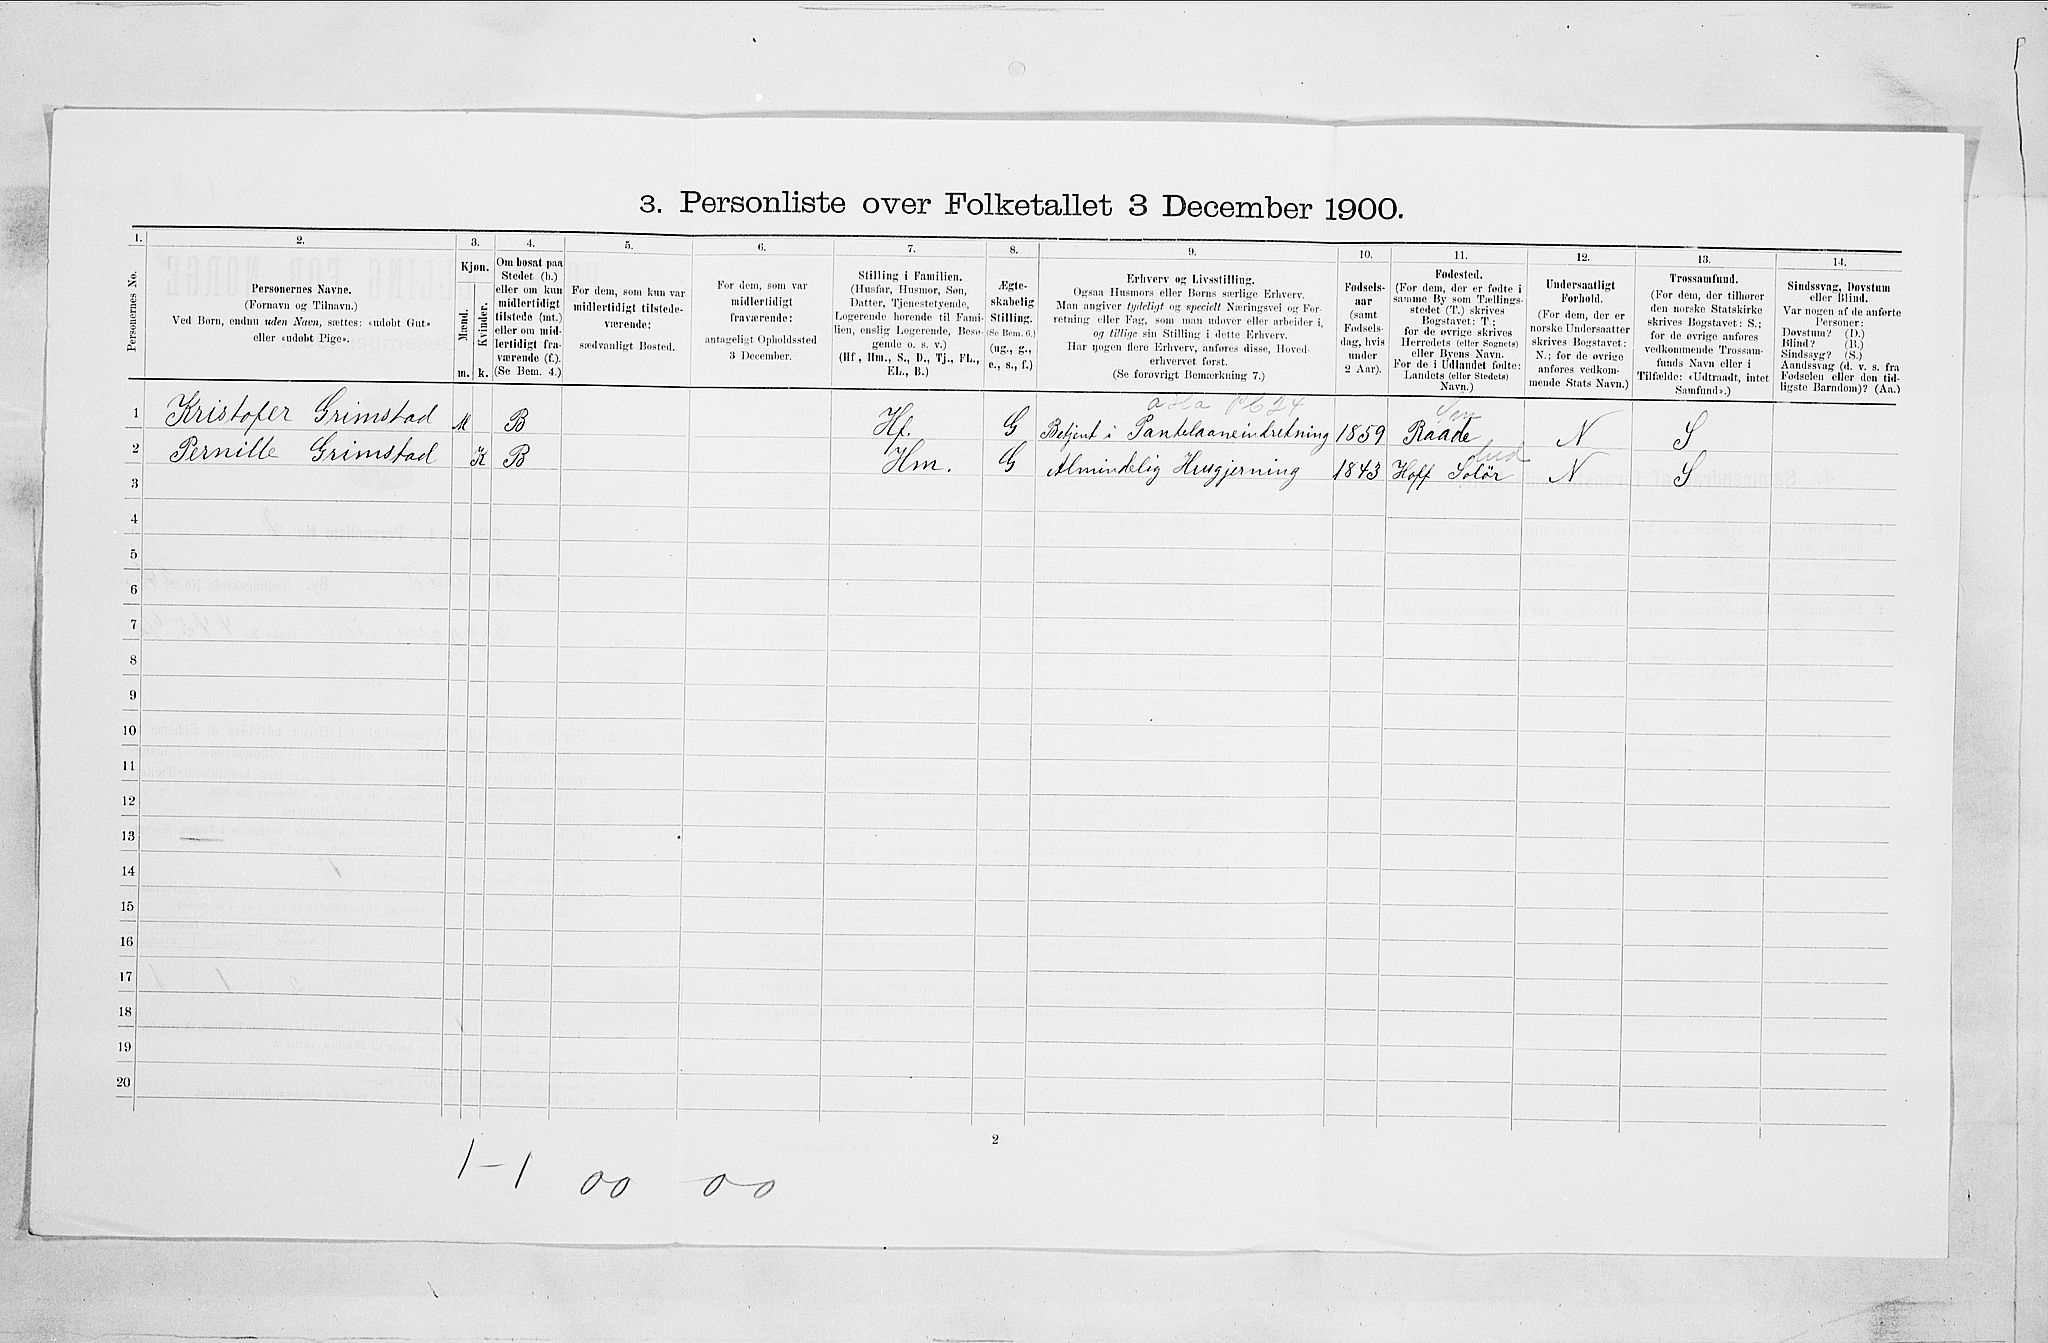 3. Personliste over Folketallet 3 December 1900.
1. 2. 3. 4. 5. 6. 7. 8. 9. 10. 11. 12. 13. 14.
Personernes No.
Personernes Navne.
(Fornavn og Tilnavn.)
Ved Børn, endnu uden Navn, sættes: «udøbt Gut»
eller «udøbt Pige».
Kjøn.
Mænd.
Kvinder.
m. k.
Om bosat paa
Stedet (b.)
eller om kun
midlertidigt
tilstede (mt.)
eller om mid-
lertidigt fra-
værende (f.).
(Se Bem. 4.)
For dem, som kun var
midlertidigt tilstede-
værende:
sædvanligt Bosted.
For dem, som var
midlertidigt
fraværende:
antageligt Opholdssted
3 December.
Stilling i Familien.
(Husfar, Husmor, Søn,
Datter, Tjenestetyende,
Logerende hørende til Fami-
lien, enslig Logerende, Besø-
gende o. s. v.)
(Hf., Hm., S., D., Tj., FL.,
EL., B.)
Ægte-
skabelig
Stilling.
(Se Bem. 6.)
(ug., g.,
e., s., f.)
Erhverv og Livsstilling.
Ogsaa Husmors eller Børns særlige Erhverv.
Man angiver tydeligt og specielt Næringsvei og For-
retning eller Fag, som man udover eller arbeider i,
og tillige sin Stilling i dette Erhverv.
Har nogen flere Erhverv, anføres disse, Hoved-
erhvervet først.
(Se forøvrigt Bemærkning 7.)
Fødsels-
aar
(samt
Fødsels-
dag, hvis
under
2 Aar).
Fødested.
(For dem, der er fødte i
samme By som Tællings-
stedet (T.) skrives
Bogstavet: T;
for de øvrige skrives
Herredets (eller Sognets)
eller Byens Navn.
For de i Udlandet fødte:
Landets (eller Stedets)
Navn.)
Undersaatligt
Forhold.
(For dem, der er
norske Undersaatter
skrives Bogstavet:
N.; for de øvrige
anføres vedkom-
mende Stats Navn.)
Trossamfund.
(For dem, der tilhører
den norske Statskirke
skrives Bogstavet: S.;
for de øvrige anføres
vedkommende Trossam-
funds Navn eller i
Tilfælde: «Udtraadt, intet
Samfund».)
Sindssvag, Døvstum
eller Blind.
Var nogen af de anførte
Personer:
Døvstum? (D.)
Blind? (B.)
Sindssyg? (S.)
Aandssvag (d. v. s. fra
Fødselen eller den tid-
ligste Barndom)? (Aa.)
1 Kristofer Grimstad M B Hf. G Betjent i Pantelaaneindretning 1859 Raade N S
2 Pernille Grimstad K B Hm. G Almindelig Husgjerning 1843 Hoff Solør N S
3
4
5
6
7
8
9
10
11
12
13
14
15
16
17
18
19
20
2
1-1 00 00